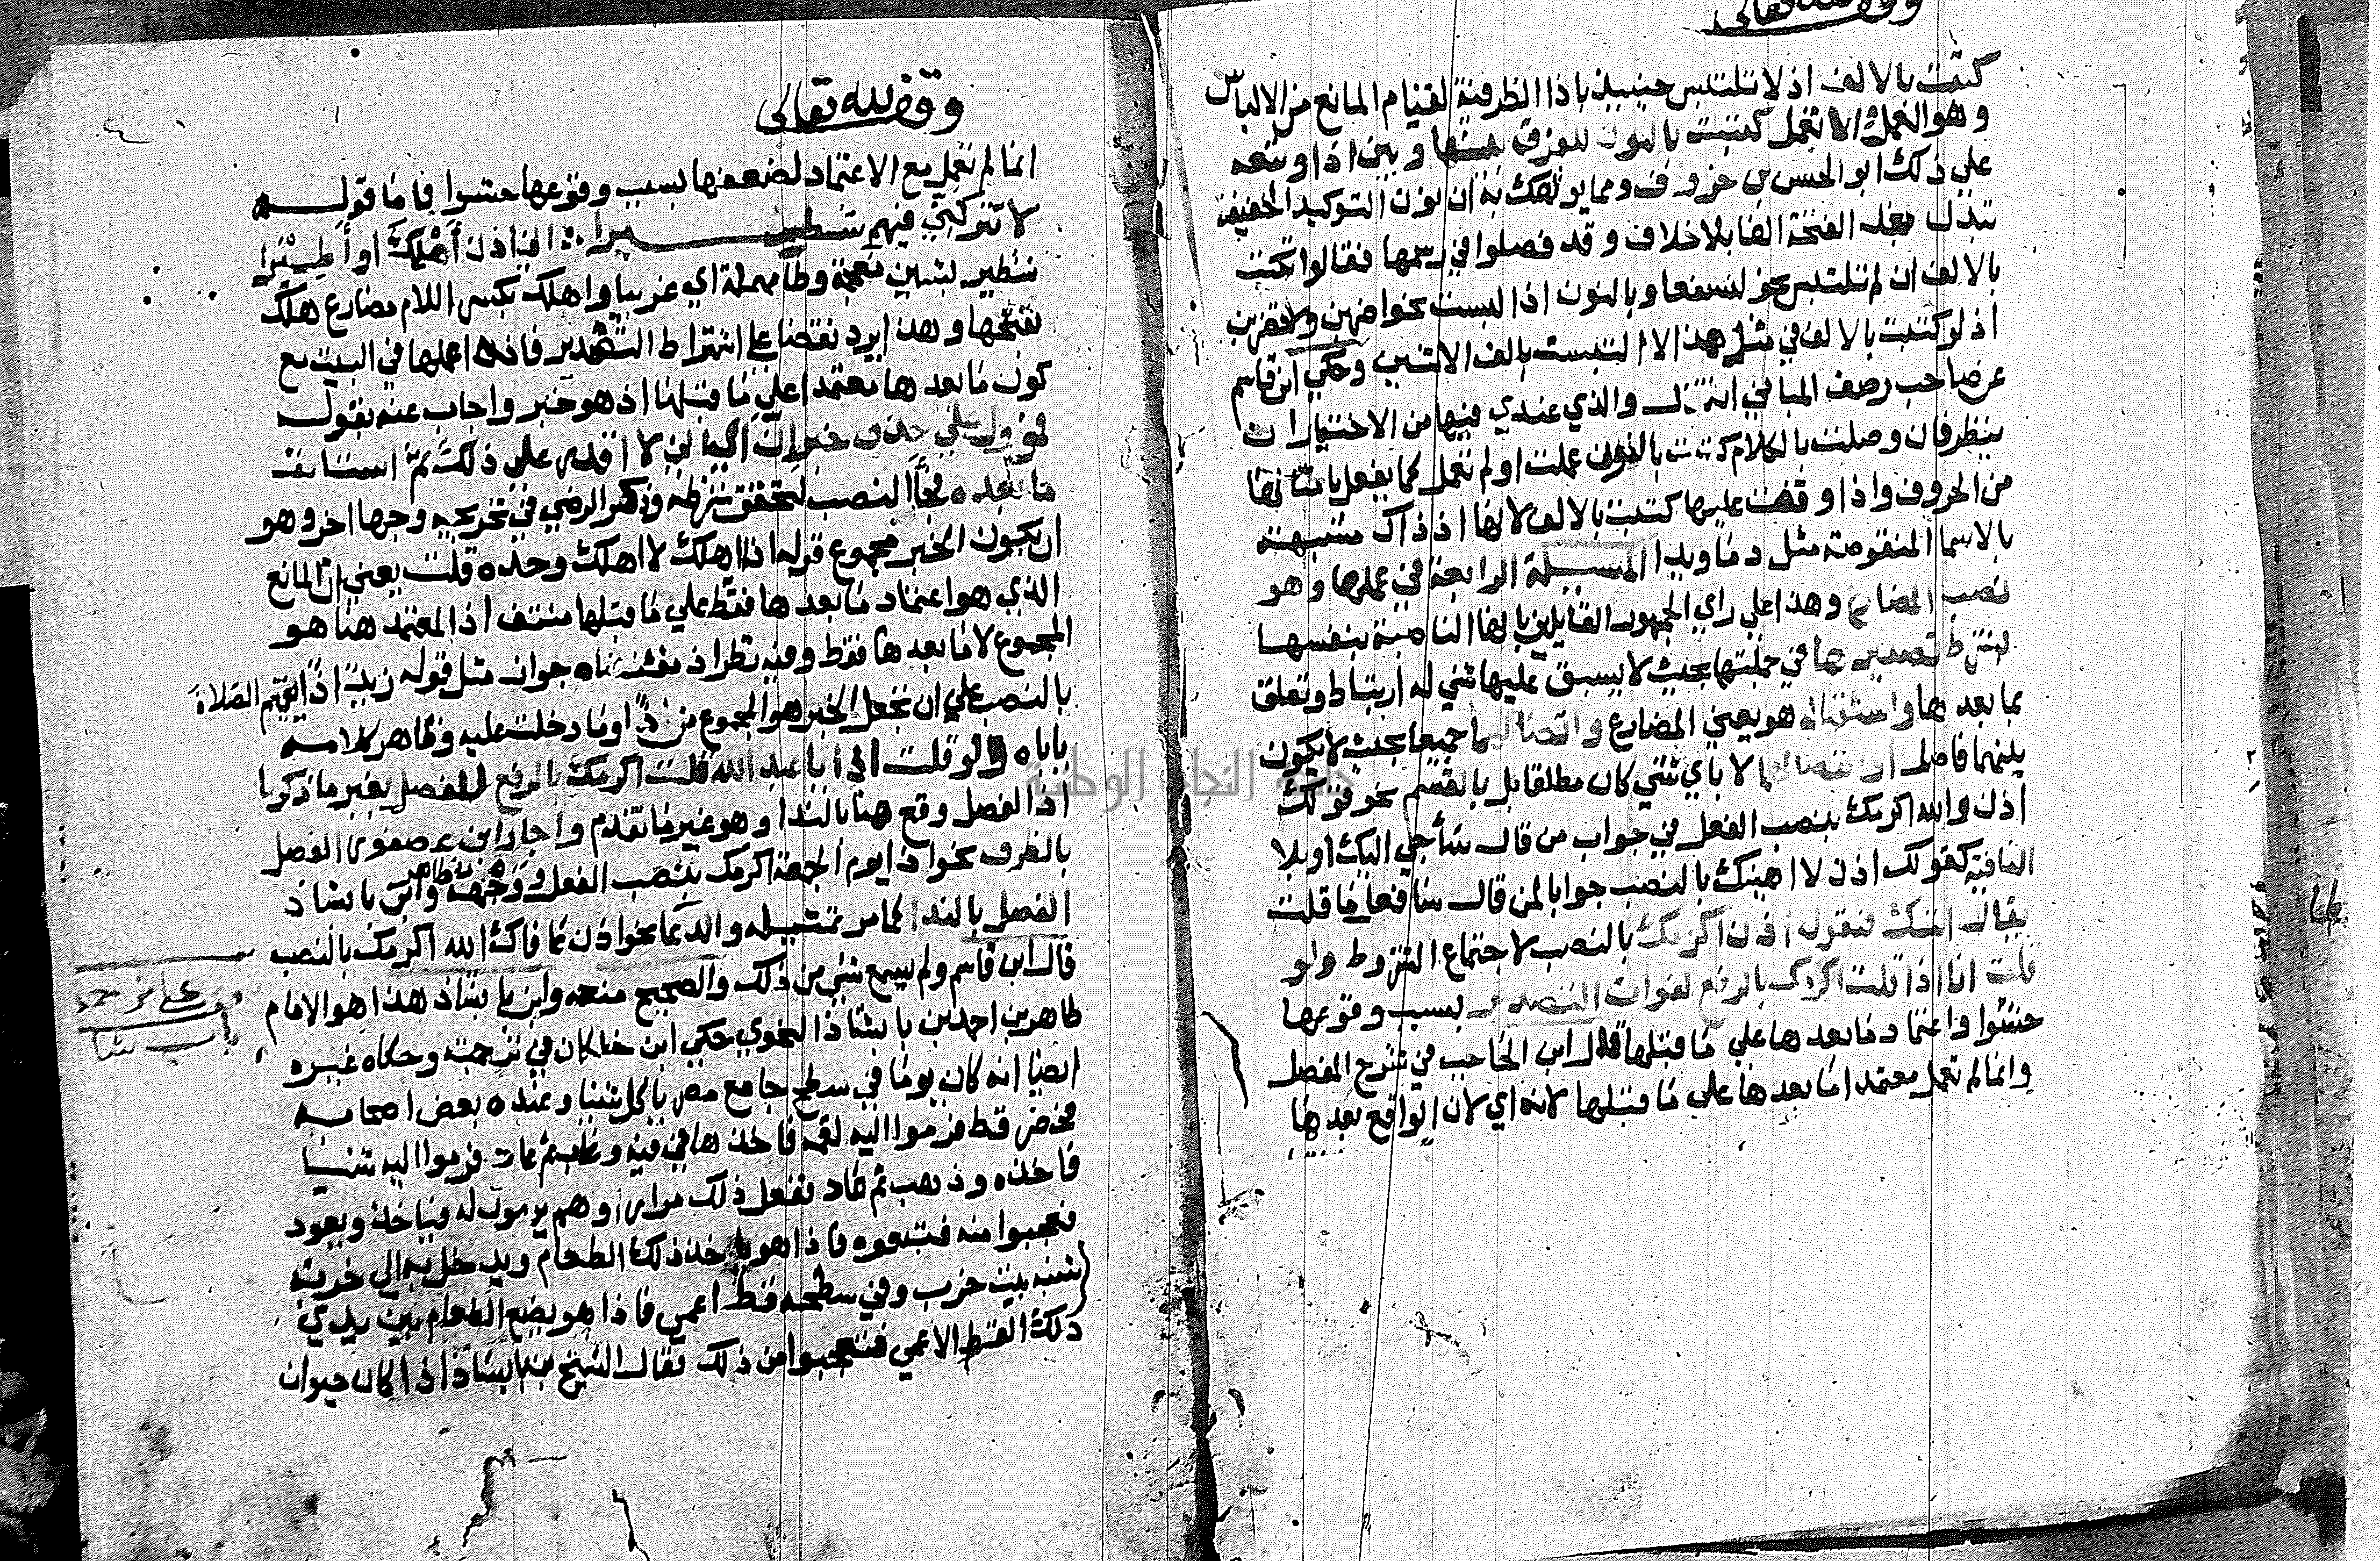 وقف لله تعالى
كتبت بالالف اذ لا تلتبس حينيذ باذا الظرفية لقيام المانع من الالباس
وهو العمل والا تعمل كتبت بالنون للفرق بينها وبين اذا وتبعه
علي ذلك ابو الحسن بن خروف ومما يونسك به ان نون التوكيد الخفيفة
تبدل بعد الفتحة الفا بلا خلاف وقد فصلوا في رسمها فقالوا تكتب
بالالف ان لم تلتبس نحو لنسفعا وبالنون اذا البست نحو اضربن ولا تضربن
اذ لو كتبت بالالف في مثل هذا الا التبست بالف الاثنين وحكي ابن قاسم
عن صاحب رصف المباني انه قال والذي عندي فيها من الاختيار ان
ينظر فان وصلت بالكلام كتبت بالنون عملت او لم تعمل كما يفعل بامثالها
من الحروف واذا وقف عليها كتبت بالالف لانها اذ ذاك مشبهة
بالاسما المنقوصة مثل دما ويدا المسيلة الرابعة في عملها وهو
نصب المضارع وهذا علي راي الجمهور القايلين بانها الناصبة بنفسها
بشرط تصديرها في جملتها بحيث لا يسبق عليها شي له ارتباط وتعلق
بما بعدها واستقبال هو يعني المضارع واتصالهما جميعا بحيث لا يكون
بينهما فاصل او انفصالهما لا باي شي كان مطلقا بل بالقسم نحو قولك
اذن والله اكرمك بنصب الفعل في جواب من قال ساجي اليك او بلا
النافية كقولك اذن لا اهينك بالنصب جوابا لمن قال سافعل ما قلت
يقال اتيتك فتقول اذن اكرمك بالنصب لاجتماع الشروط ولو
قلت انا اذا قلت اكرمك بالرفع لفوات التصدير بسبب وقوعها
حشوا واعتماد ما بعدها علي ما قبلها قال ابن الحاجب في شرح المفصل
وانما لم تعمل معتمدا ما بعدها على ما قبلها لانه اي لان الواقع بعدها
وقف لله تعالى
انما لم تعمل مع الاعتماد لضعفها بسبب وقوعها حشوا فاما قوله
لا تتركني فيهم شطيرا اني اذن أهلك أو أطيرا
شطير بشين معجمة وطا مهملة اي غريبا واهلك بكسر اللام مضارع هلك
بفتحها وهذا يرد نقضا علي اشتراط التصدير فانه اعملها في البيت مع
كون ما بعدها معتمدا علي ما قبلها اذ هو خبر واجاب عنه بقوله
فمؤول علي حذف خبر إن اي اني لا اقدر على ذلك ثم استانف
ما بعده فجاء النصب لتحقق شرطه وذكر الرضي في تخريجه وجها اخر وهو
ان يكون الخبر مجموع قوله اذا اهلك لا اهلك وحده قلت يعني ان المانع
الذي هو اعتماد ما بعدها فقط علي ما قبلها منتف اذ المعتمد هنا هو
المجموع لا ما بعدها فقط وفيه نظر اذ مقتضاه جواز مثل قوله زيد اذا يقيم الصلاة
بالنصب علي ان تجعل الخبر هو المجموع من اذا وما دخلت عليه وظاهر كلامه
ياباه ولو قلت اذا يا عبد الله قلت اكرمك بالرفع للفصل بغير ما ذكرنا
اذ الفصل وقع هنا بالندا وهو غير ما تقدم واجاز ابن عصفور الفصل
بالظرف نحو اذا يوم الجمعة اكرمك بنصب الفعل ووجهه وابن بابشاذ
الفصل بالندا كما مر تمثيله والدعا نحو اذن عافاك الله اكرمك بالنصب
قال ابن قاسم ولم يسمع شي من ذلك والصحيح منعه وابن بابشاذ هذا هو الامام
طاهر بن احمد بن بابشاذ النحوي حكي ابن خلكان في ترجمته وحكاه غيره
ايضا انه كان يوما في سطح جامع مصر ياكل شيئا وعنده بعض اصحابه
فحضر قط فرموا اليه لقمة فاخذها في فيه وغاب ثم عاد فرموا اليه شيئا
فاخذه وذهب ثم عاد ففعل ذلك مرارا وهم يرمون له فياخذ ويعود
فتعجبوا منه فتبعوه فاذا هو ياخذ ذلك الطعام ويدخل به الى خربة
شبه بيت خرب وفي سطحه قط اعمي فاذا هو يضع الطعام بين يدي
ذلك القط الاعمي فتعجبوا من ذلك فقال الشيخ بن بابشاذ اذا كان حيوان